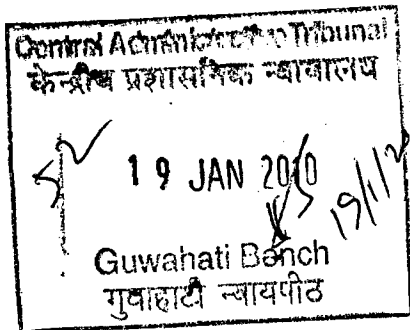 Central Administrative Tribunal
केन्द्रीय प्रशासनिक न्यायालय
19 JAN 2010
19/1/2
Guwahati Bench
गुवाहाटी न्यायपीठ